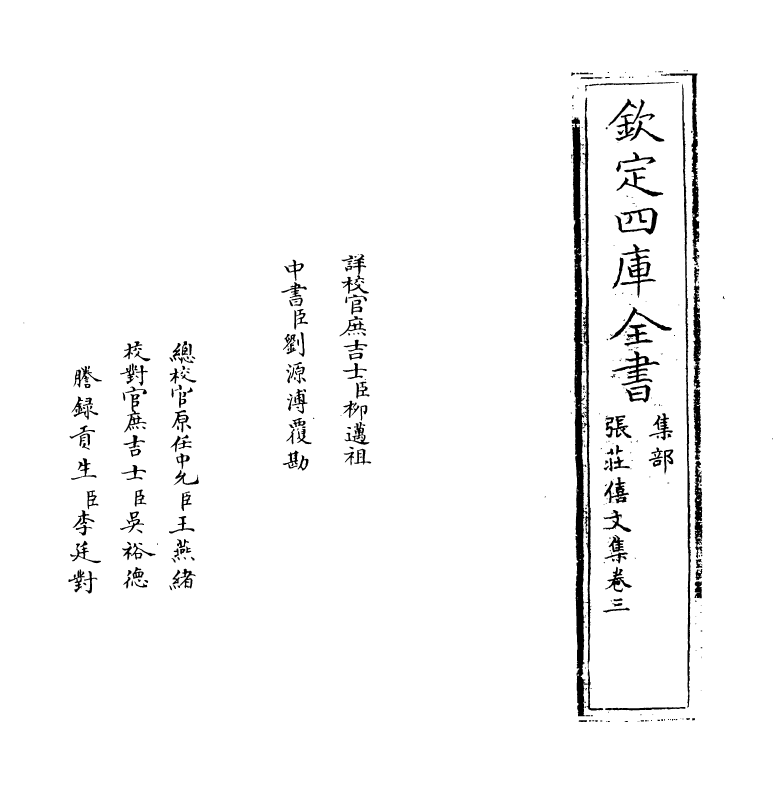 欽定四庫全書
集部
張莊僖文集卷三
詳校官庶吉士臣柳邁祖
中書臣劉源溥覆勘
總校官原任中允臣王燕緒
校對官庶吉士臣吳裕德
謄録貢生臣李廷對